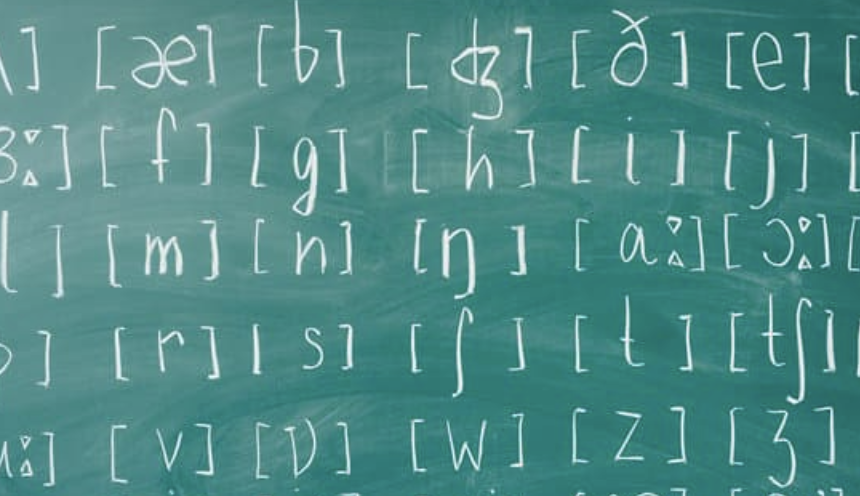 ] [æ] [b] [ʤ] [ð] [e] [
ɜː] [f] [g] [h] [i] [j] [
l] [m] [n] [ŋ] [aː] [ɔː] [
] [r] [s] [ʃ] [t] [tʃ]
ː] [v] [ʋ] [w] [z] [ʒ]